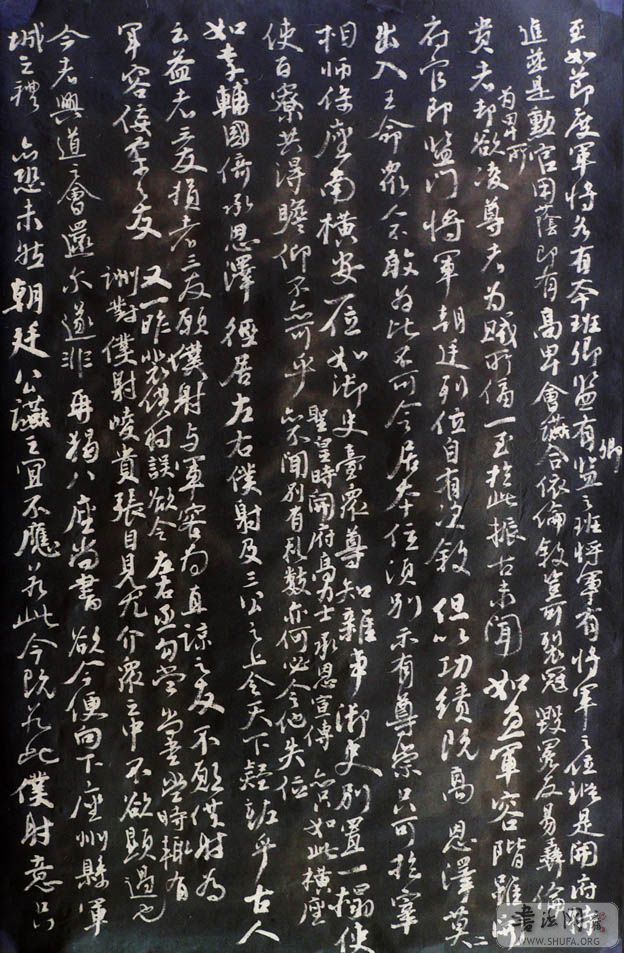 至如節度軍將各有本班卿監有卿監之班將軍有將軍之位縱是開府特
進並是勳官用蔭即有高卑會讌合依倫敘豈可裂冠毀冕反易彝倫
貴者為卑所却欲凌尊者為賊所逼一至於此振古未聞如魚軍容階雖開
府官即監門將軍朝廷列位自有次敘但以功績既高恩澤莫二
出入王命眾人不敢為比不可令居本位須別示有尊崇只可於宰
相師保座南橫安一位如御史臺眾尊知雜事御史別置一榻使
使百寮共得瞻仰不亦可乎
聖皇時開府高力士承恩宣傳亦只如此橫座
亦不聞別有禮數亦何必令他失位
如李輔國倚承恩澤徑居左右僕射及三公之上令天下疑怪乎古人
云益者三友損者三友願僕射與軍容為直諒之友不願僕射為
軍容佞柔之友
又一昨裴僕射誤欲令左右丞勾當尚書當時輒有
酬對僕射恃貴張目見尤介眾之中不欲顯過也
今者興道之會還爾遂非再猲八座尚書欲令便向下座州縣軍
城之禮亦恐未然朝廷公讌之宜不應若此今既若此僕射意只
書法网
WWW.SHUFA.ORG